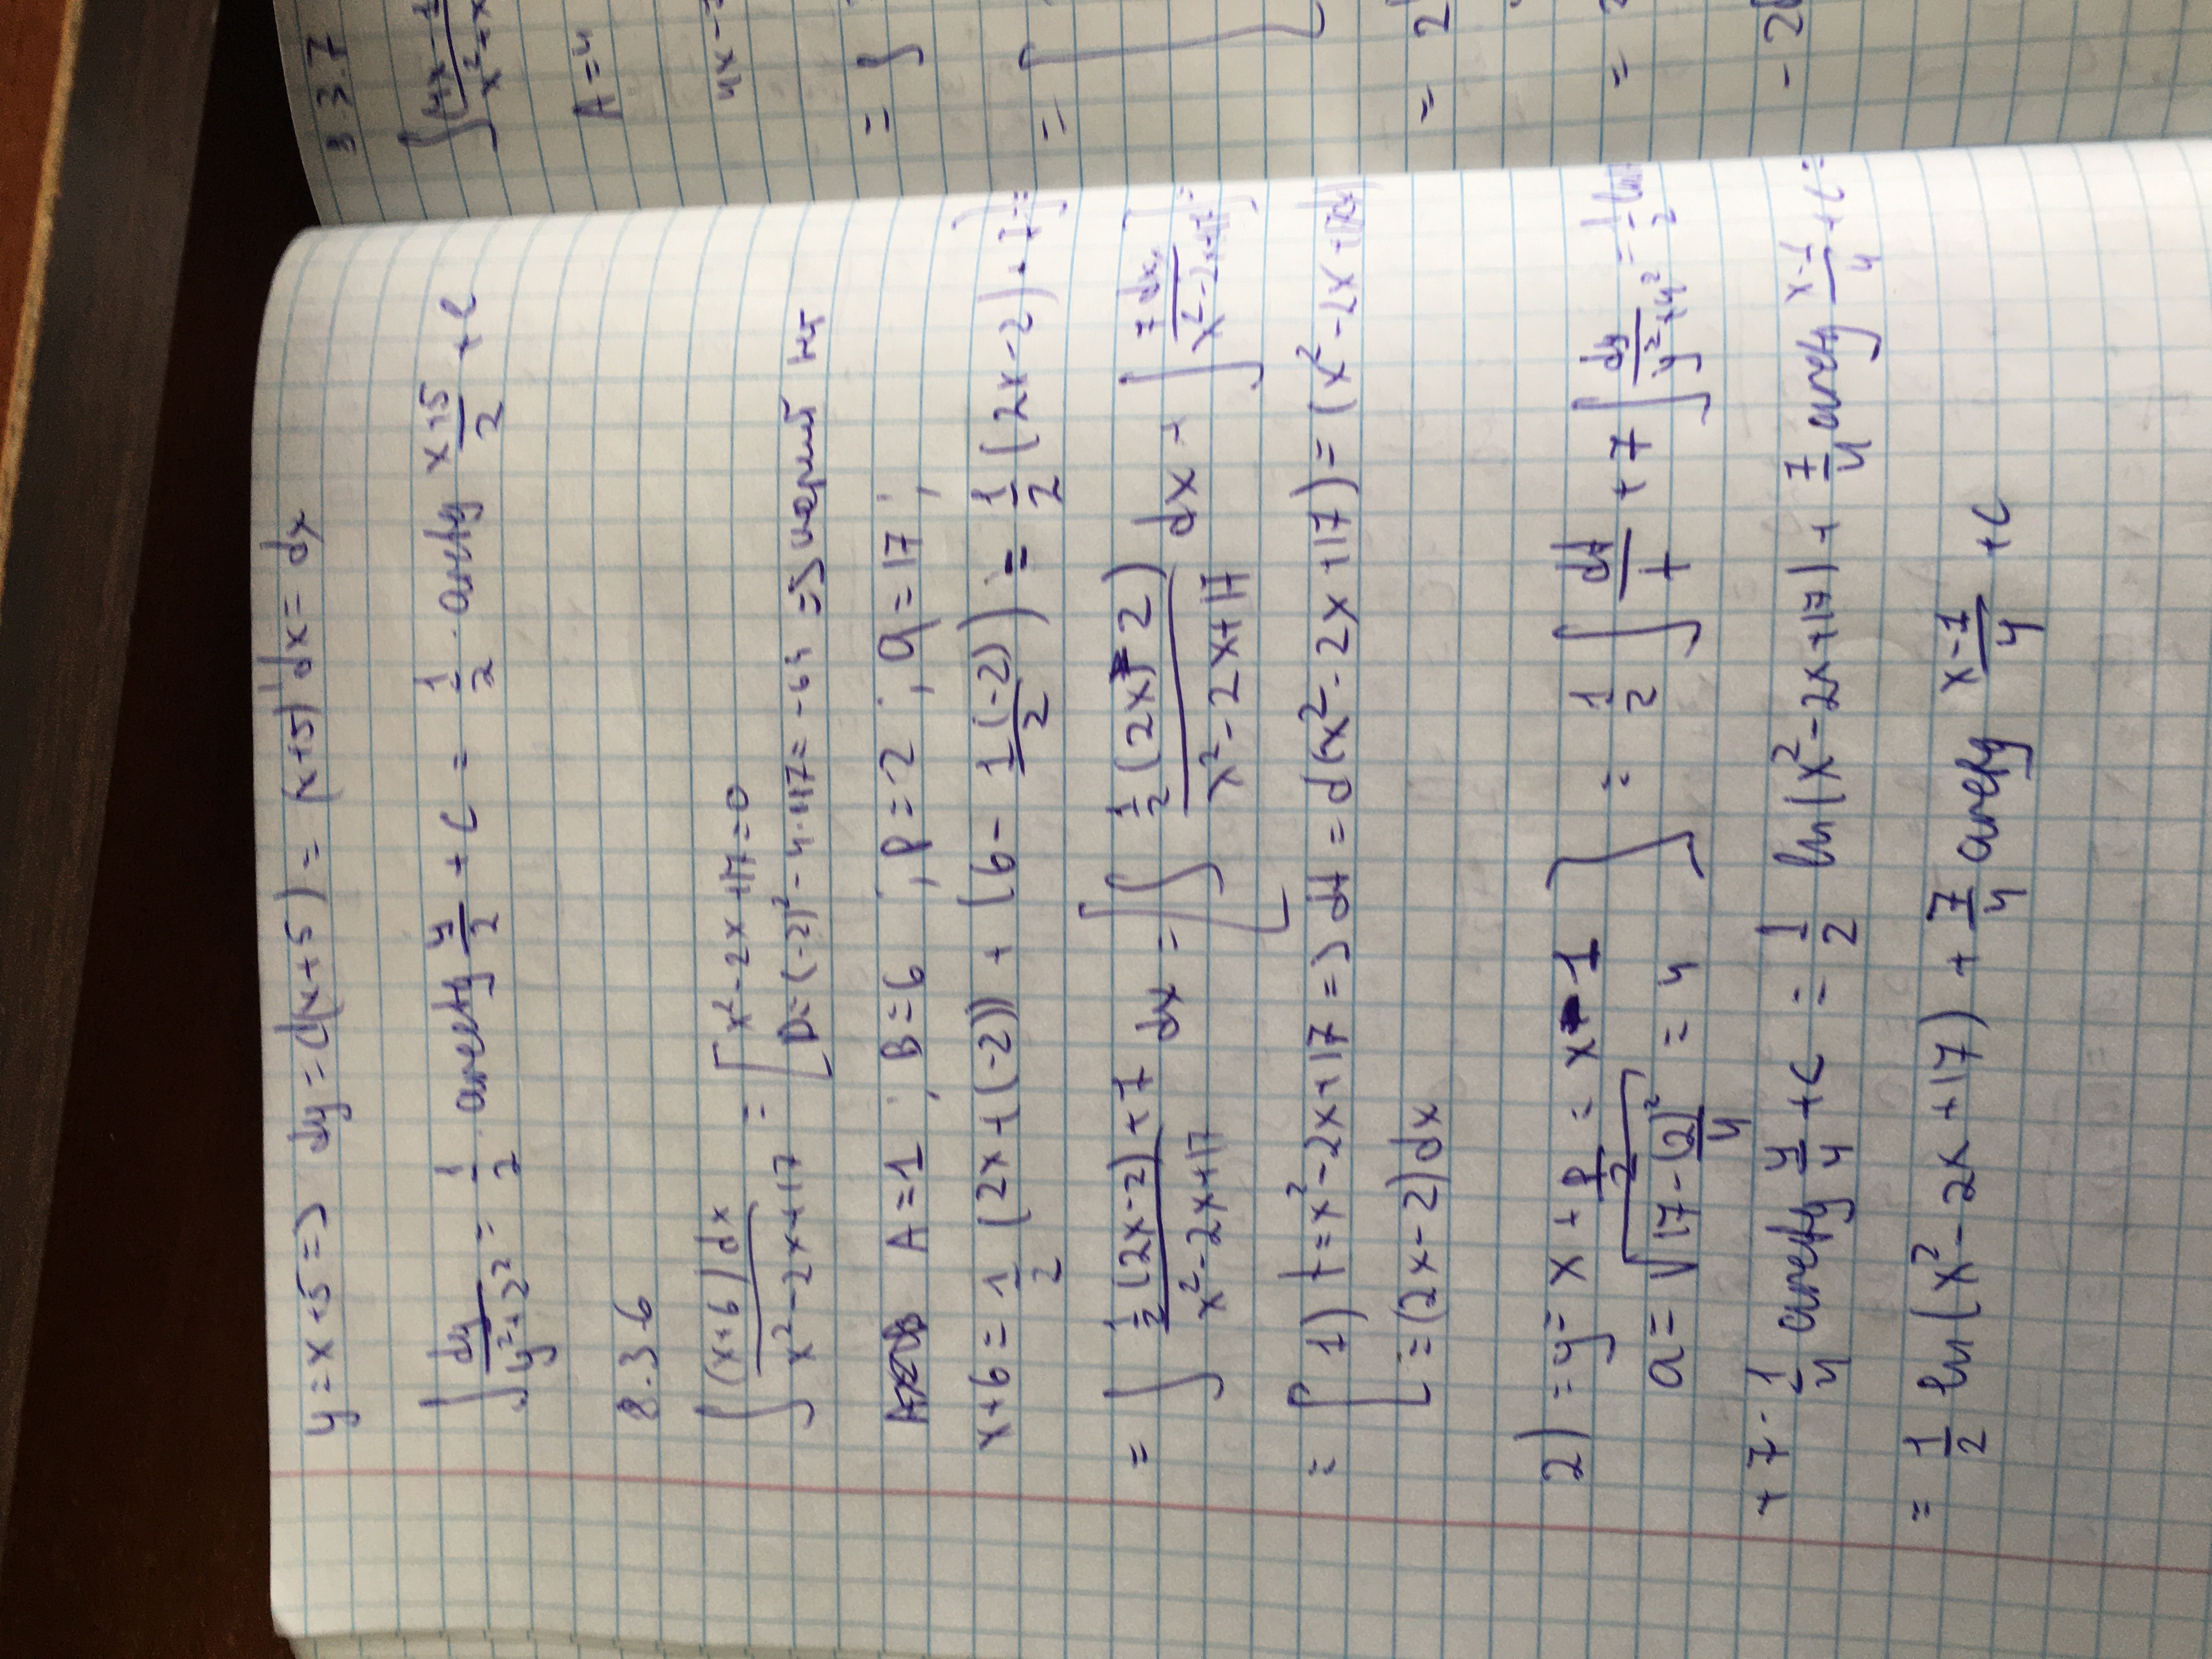 y = x+5 => dy = d(x+5) = (x+5)' dx = dx
3.3.7
∫ dy/(y²+2²) = 1/2 · arctg y/2 + C = 1/2 · arctg (x+5)/2 + C
∫ (4x-1 / x²+x
A=4
8.3.6
∫ (x+6)dx / (x²-2x+17) = [ x²-2x+17=0
4x-
D=(-2)²-4·1·17= -64 => корней нет
= ∫
A=1 ; B=6 ; p=-2 ; q=17 ;
x+6 = 1/2 (2x+(-2)) + (6 - 1(-2)/2) = 1/2 (2x-2) + 7] =
= [
= ∫ (1/2 (2x-2)+7)/(x²-2x+17) dx = [ ∫ (1/2 (2x-2))/(x²-2x+17) dx + ∫ 7dx/(x²-2x+17) ] =
= [ 1) t=x²-2x+17 => dt = d(x²-2x+17) = (x²-2x+17)'dx
= (2x-2)dx
= 2
2) = y = x + p/2 = x - 1
a = √(17-(2)²/4) = 4 ] = 1/2 ∫ dt/t + 7 ∫ dy/(y²+4²) = 1/2 ln
=
+ 7 · 1/4 arctg y/4 + C = 1/2 ln(x²-2x+17) + 7/4 arctg (x-1)/4 + C =
- 2
= 1/2 ln(x²-2x+17) + 7/4 arctg (x-1)/4 + C